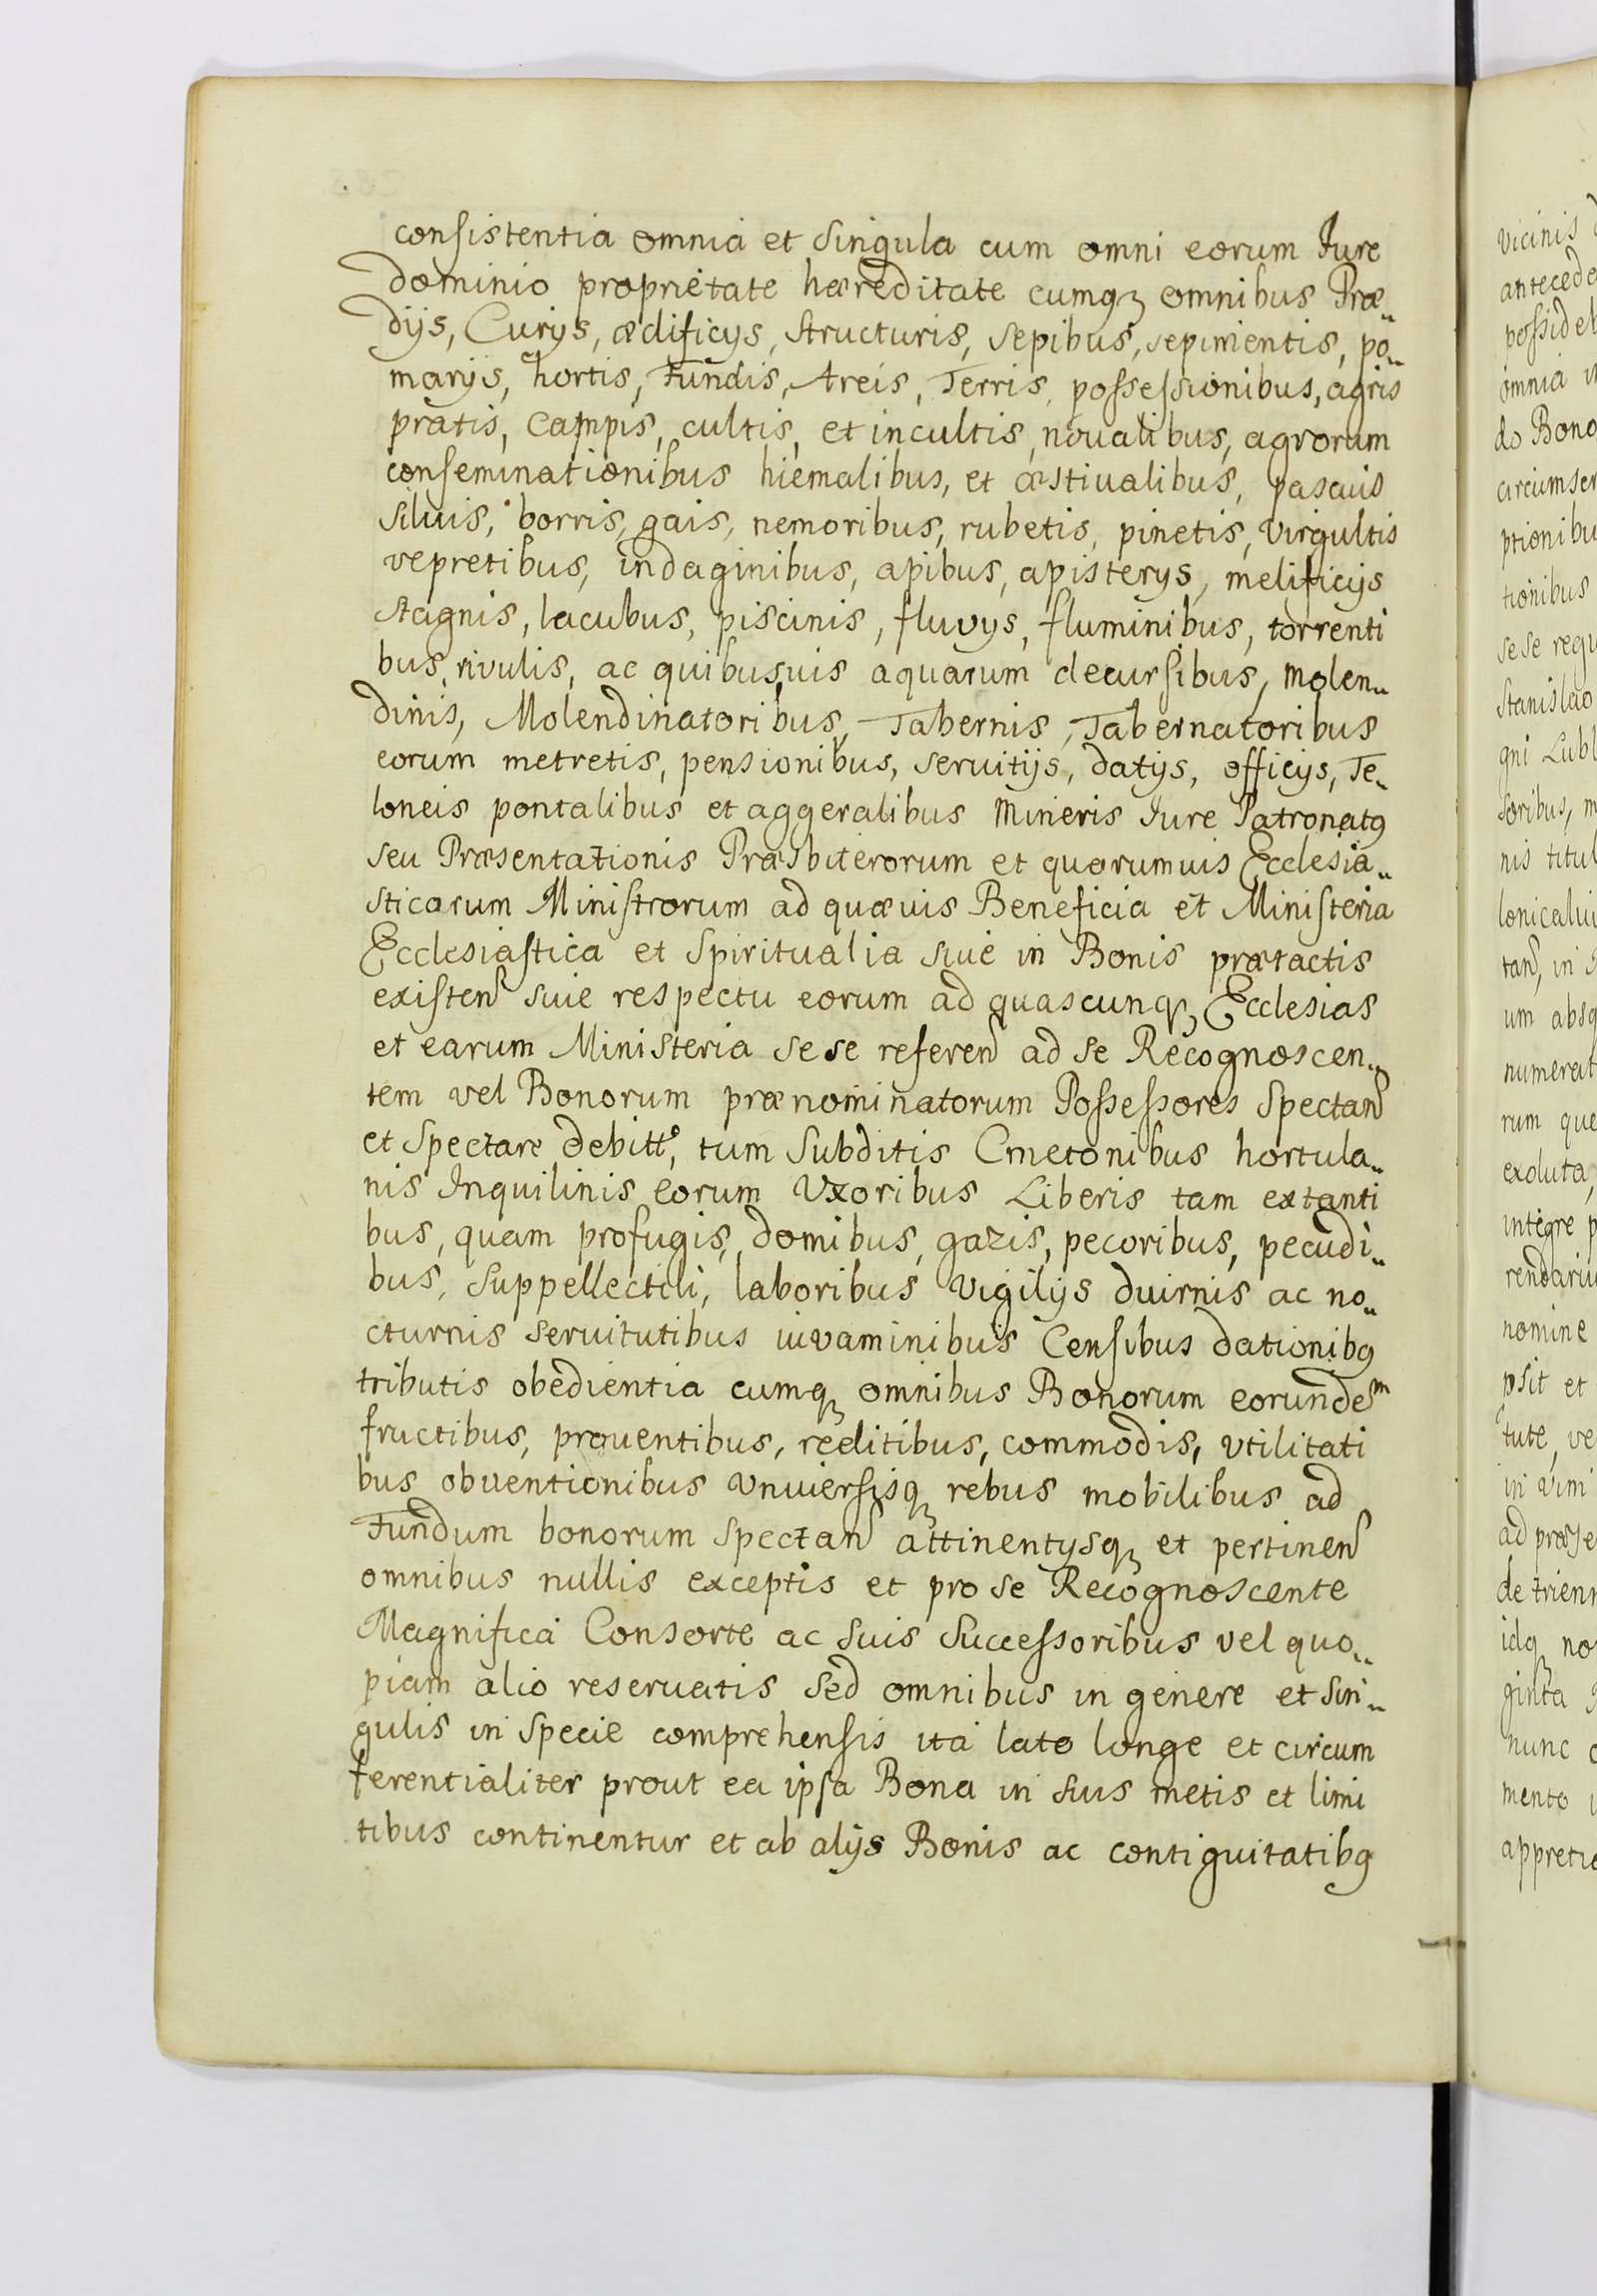 consistentia omnia et singula cum omni eorum Iure
dominio proprietate hæreditate cumqꝫ omnibus Præ„
dijs, Curijs, ædificijs, structuris, sepibus, sepimentis, po„
marijs, hortis, Fundis, Areis, Terris, possessionibus, agris
pratis, Campis, cultis, et incultis, noualibus, agrorum
conseminationibus hiemalibus, et æstiualibus, pascuis
Siluis, borris, gais, nemoribus, rubetis, pinetis, virgultis
vepretibus, indaginibus, apibus, apisterijs, melificijs
stagnis, lacubus, piscinis, fluvijs, fluminibus, torrenti
bus, rivulis, ac quibusuis aquarum decursibus, molen„
dinis, Molendinatoribus, Tabernis, Tabernatoribus
eorum metretis, pensionibus, seruitijs, datijs, officijs, Te„
loneis pontalibus et aggeralibus Mineris Iure Patronatꝰ
seu Præsentationis Præsbiterorum et quorumuis Ecclesia„
sticarum Ministrorum ad quæuis Beneficia et Ministeria
Ecclesiastica et Spiritualia siue in Bonis prætactis
existen̄ siue respectu eorum ad quascunqꝫ Ecclesias
et earum Ministeria sese referen̄ ad se Recognoscen„
tem vel Bonorum prænominatorum Possessores Spectan̄
et Spectare debittͤ, tum Subditis Cmetonibus hortula„
nis Inquilinis eorum Vxoribus Liberis tam extanti
bus, quam profugis, domibus, gazis, pecoribus, pecudi„
bus, Suppellectili, laboribus Vigilijs duirnis ac no„
cturnis seruitutibus iuvaminibus Censibus dationibꝰ
tributis obedientia cumqꝫ omnibus Bonorum eorundeᵐ
fructibus, prouentibus, reditibus, commodis, vtilitati
bus obventionibus Vniuersisqꝫ rebus mobilibus ad
Fundum bonorum spectan̄ attinentijsqꝫ et pertinen̄
omnibus nullis exceptis et pro se Recognoscente
Magnifica Consorte ac suis Successoribus vel quo„
piam alio reseruatis sed omnibus in genere et sin„
gulis in specie comprehensis ita late longe et circum
ferentialiter prout ea ipsa Bona in suis metis et limi
tibus continentur et ab alijs Bonis ac contiguitatibꝰ
vicinis
possidet
omnia
do Bono
tionibus
sese regu
Stanislao
gni Lubl
soribus, m
nis titul
um absq
numerat
rum que
exoluta,
integre p
nomine
psit et
tute, ve
in vim
de trienn
idqꝫ no
ginta
nunc
mento